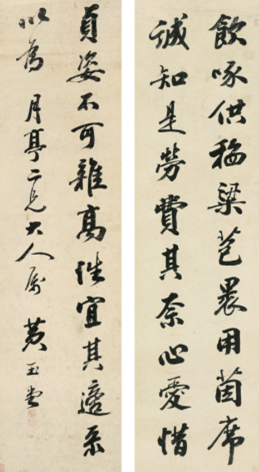 飲啄供稻粱苞裹用茵席
誠知是勞費其奈心愛惜
貞姿不可雜高性宜其適系
以為月亭二兄大人屬 黃玉堂